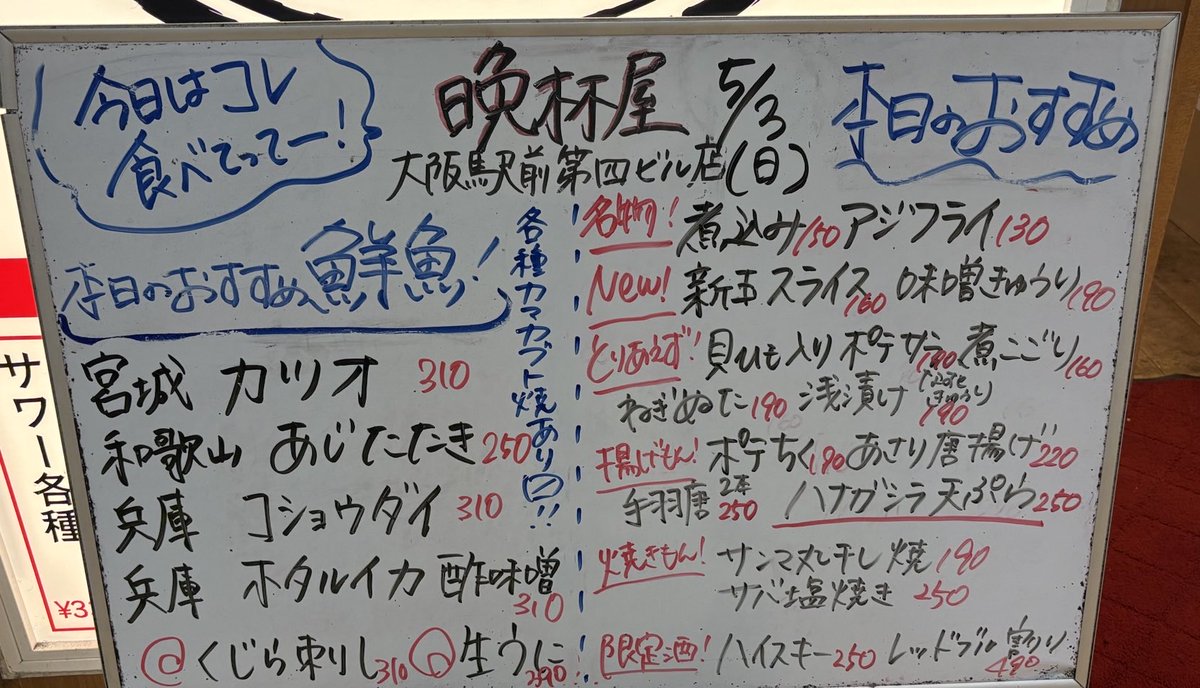 今日はコレ
食べてってー！
晩杯屋
5/3
(日)
大阪駅前第四ビル店
本日のおすすめ
本日のおすすめ鮮魚！
宮城 カツオ 310
和歌山 あじたたき 250
兵庫 コショウダイ 310
兵庫 ホタルイカ酢味噌 310
くじら刺し 310 生ウに
各種カマカブト焼あり
名物！ 煮込み 150 アジフライ 130
New! 新玉スライス 160 味噌きゅうり 190
とりあえず！ 貝ひも入りポテサラ 煮こごり 160
ねぎぬた 190 浅漬け きゅうり 190
揚げもん！ ポテちく 190 あさり唐揚げ 220
手羽唐 2本 250 ハナガシラ天ぷら 250
焼きもん！ サンマ丸干し焼 190
サバ塩焼き 250
限定酒！ ハイスキー 250 レッドブル割り 490
サワー各種